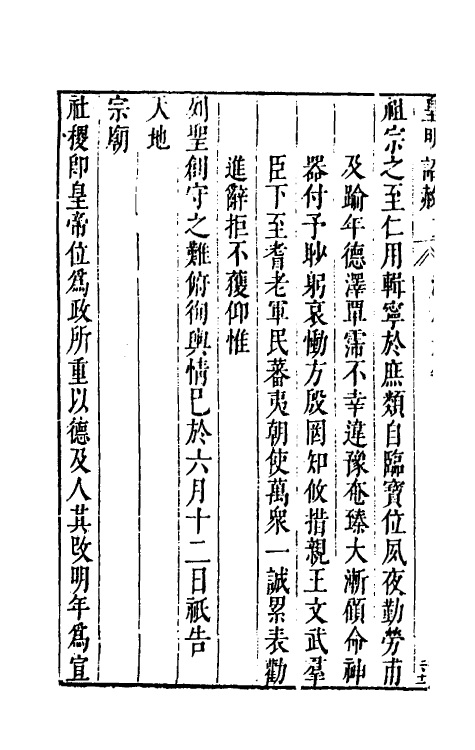 皇明詔赦
祖宗之至仁用輯寧於庶類自臨寶位夙夜勤勞甫
及踰年德澤覃霈不幸違豫奄臻大漸頒命神
器付予眇躬哀慟方殷罔知攸措親王文武羣
臣下至耆老軍民蕃夷朝使萬衆一誠累表勸
進辭拒不獲仰惟
列聖創守之難俯徇輿情已於六月十二日祇告
天地
宗廟
社稷即皇帝位爲政所重以德及人其改明年爲宣